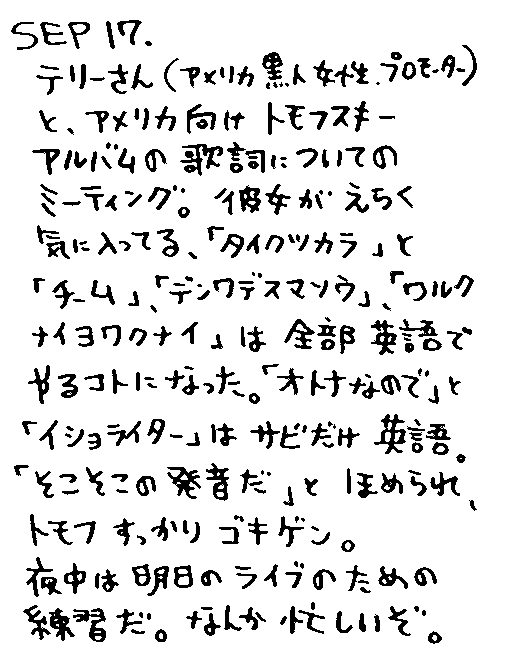 SEP 17.
テリーさん(アメリカ黒人女性.プロモーター)
と、アメリカ向け トモフスキー
アルバムの 歌詞についての
ミーティング。彼女が えらく
気に入ってる、「タイクツカラ」と
「チーム」、「デンワデスマソウ」、「ワルク
ナイヨワクナイ」は 全部 英語で
やるコトになった。「オトナなので」と
「イショライター」は サビだけ 英語。
「そこそこの発音だ」と ほめられ、
トモフ すっかり ゴキゲン。
夜中は 明日の ライブのための
練習だ。なんか 忙しいぞ。